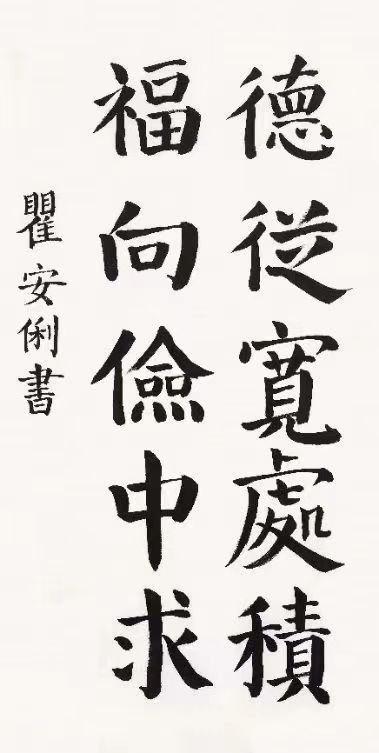 德從寬處積
福向儉中求
瞿安俐書